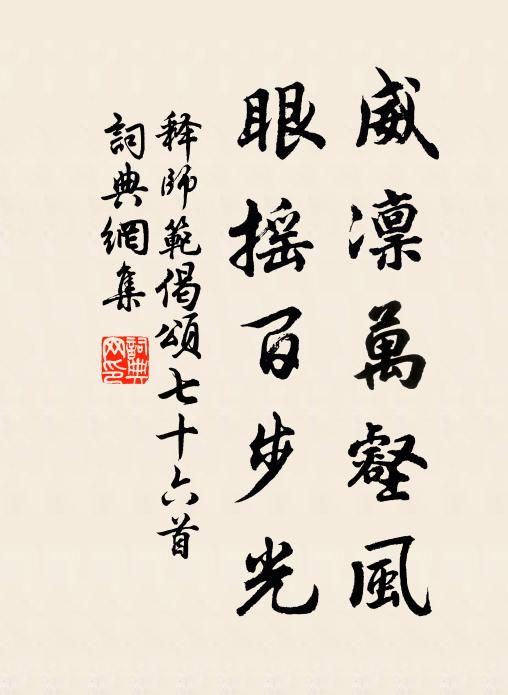 威凛萬壑風
眼摇百步光
释師範偈頌七十六首
詞典網集
詞典
网印